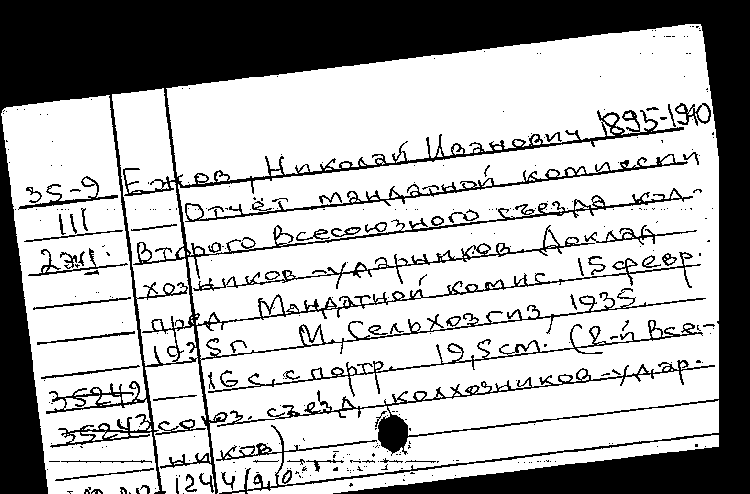 35-9 Ежов, Николай Иванович, 1895-1940
III Отчёт мандатной комиссии
2 экз. Второго Всесоюзного съезда кол-
хозников-ударников. Доклад
пред. Мандатной комис. 15 февр.
1935 г. М., Сельхозгиз, 1935.
35242 16 с. с портр. 19,5 см. (2-й Все-
35243 союз. съезд колхозников-удар-
ников).